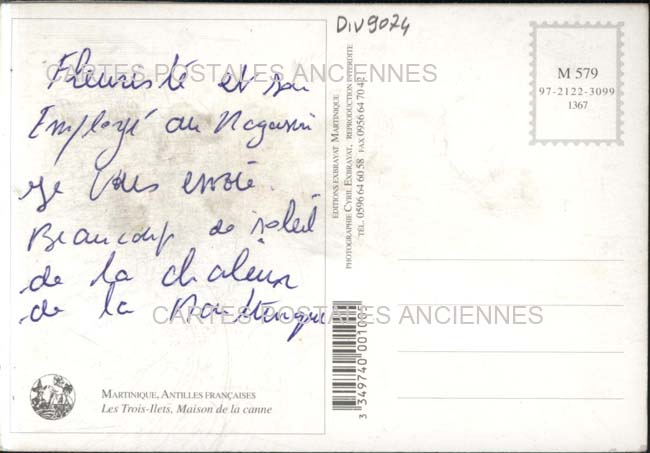 DIV9074
Fleuriste et son
Employé au Magasin
Je Vous envoie.
Beaucoup de soleil
de la chaleur
de la Martinique
CARTES POSTALES ANCIENNES
CARTES POSTALES ANCIENNES
MARTINIQUE, ANTILLES FRANÇAISES
Les Trois-Ilets, Maison de la canne
ÉDITIONS EXBRAYAT MARTINIQUE
PHOTOGRAPHIE CYRIL EXBRAYAT, REPRODUCTION INTERDITE
TÉL. 0596 64 60 58 FAX 0956 64 70 42
3 349740 001005
M 579
97-2122-3099
1367